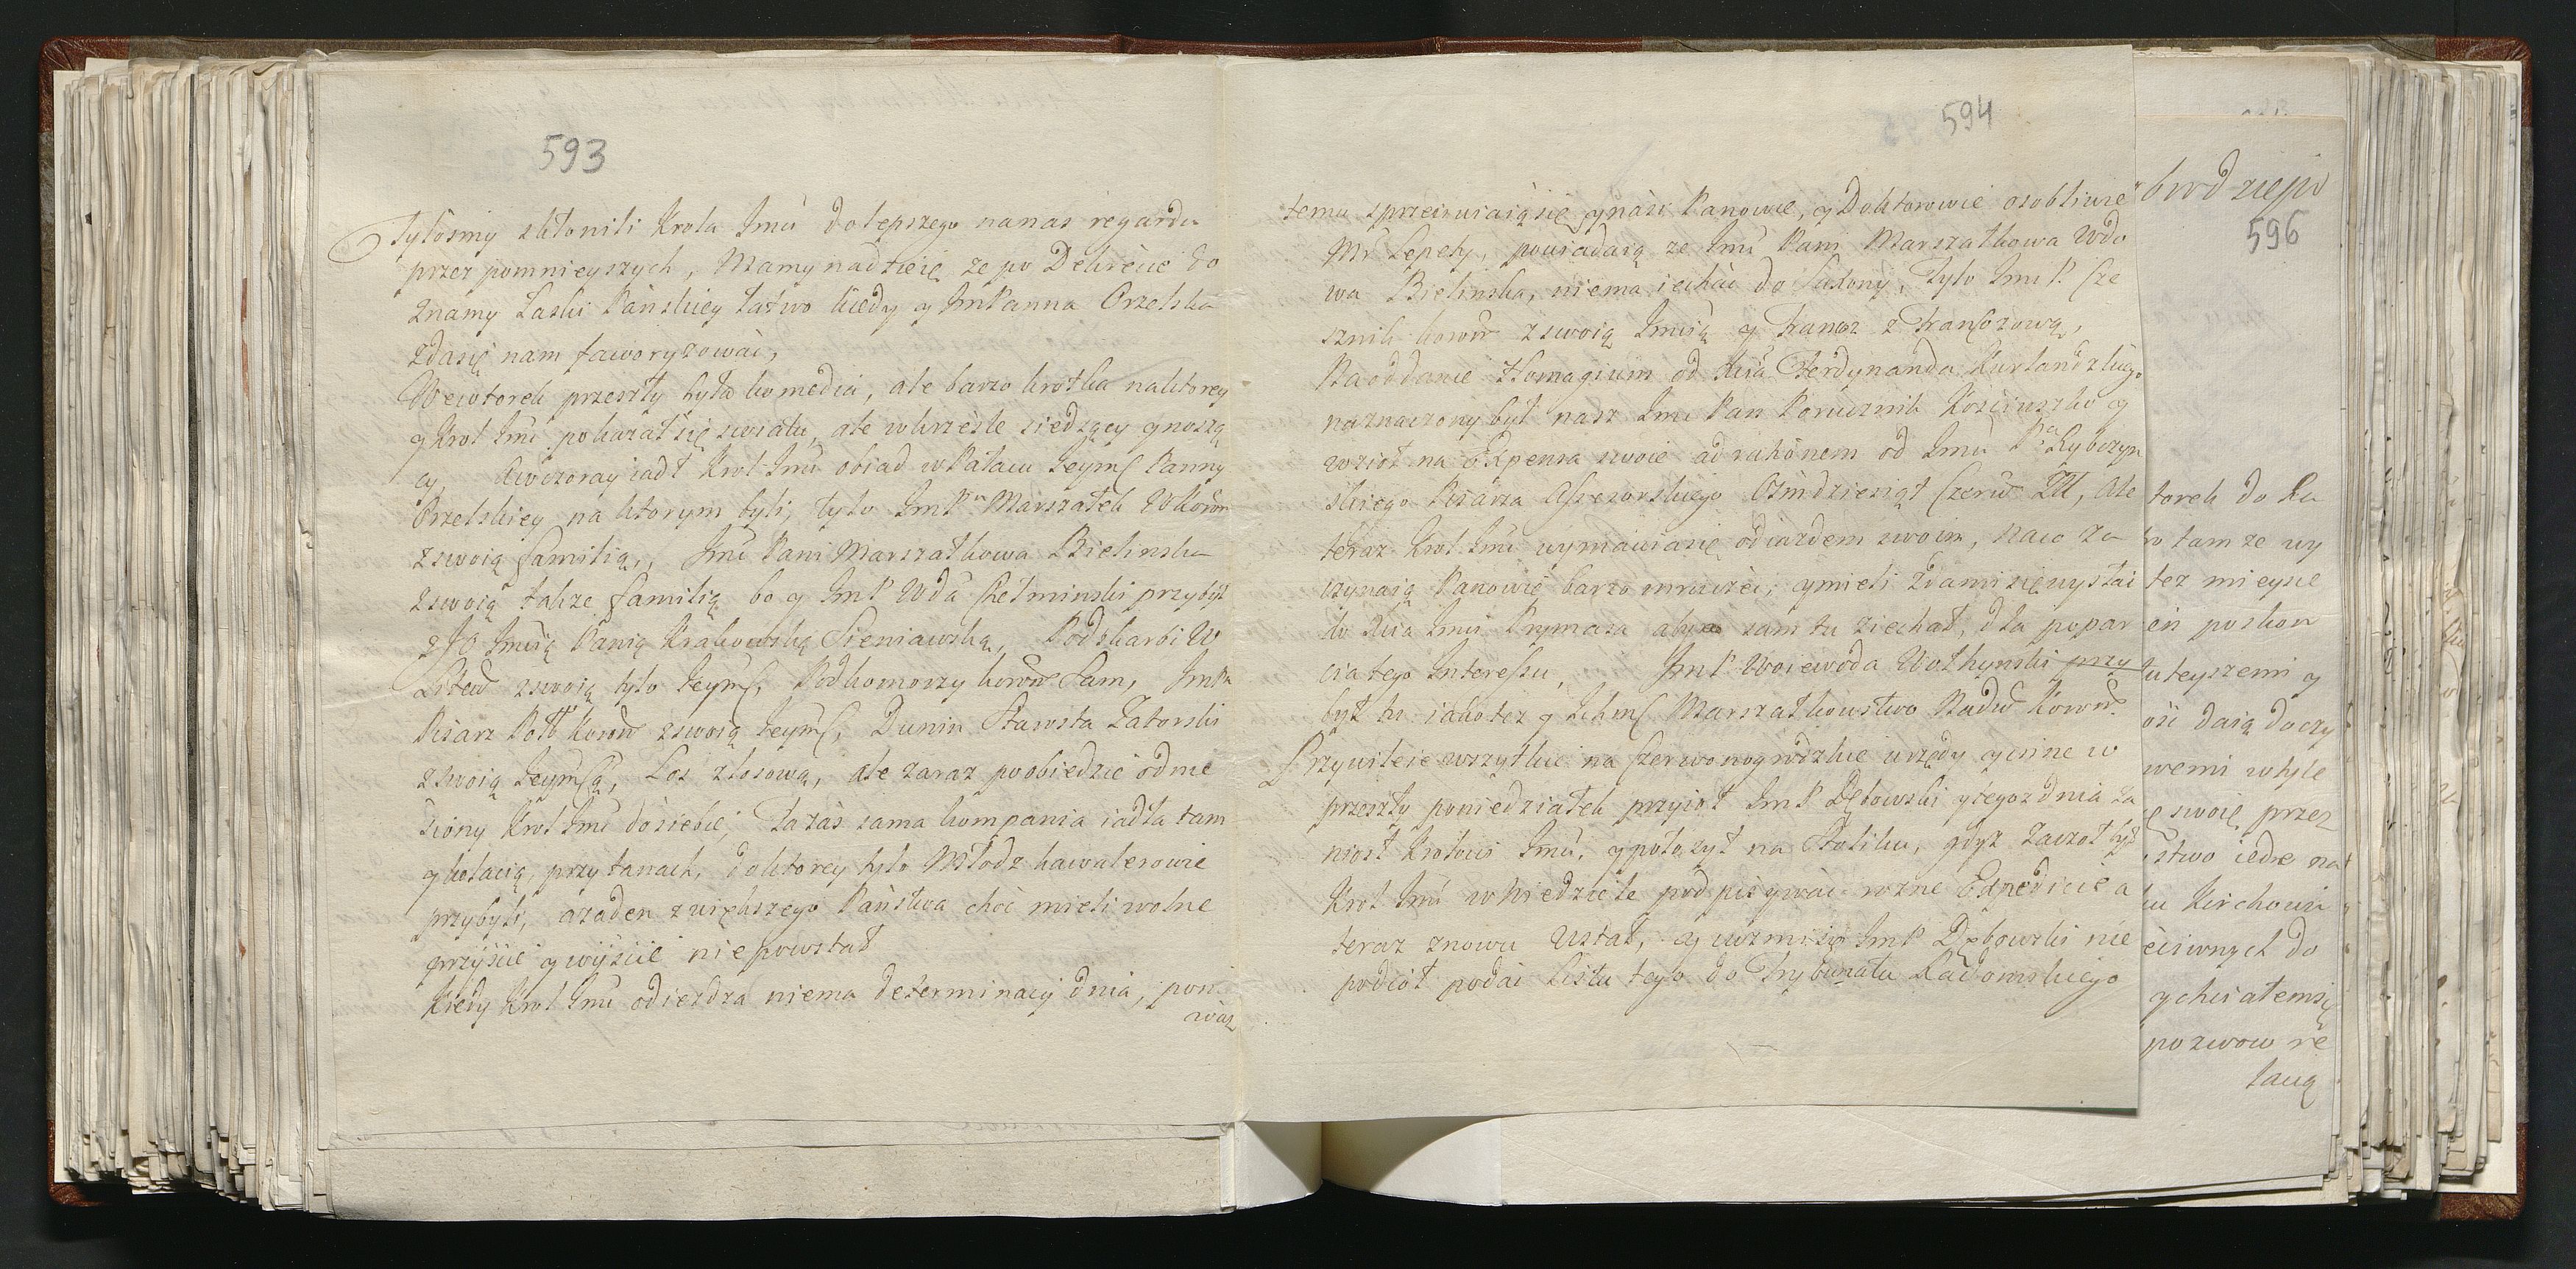 593
Tylosmy skłonili Krola Jmci do lepszego na nas regardu
przez pomnieyszych, Mamy nadzieię ze po Dekrecie do
znamy Łaski Pańskiey łatwo kiedy y JmPanna Orzelska
zdasię nam faworyzować,
We wtorek przeszły była komedia, ale barzo krotka na ktorey
y Krol Jmć pokazał się swiatu, ale w krzesle siedzący y noszą
cy, A wczoray iadł Krol Jmć obiad w Pałacu Jeymć Panny
Orzelskiey na ktorym byli, tylo JmP Marszałek W Koron
z swoią familią, Jmć Pani Marszałkowa Bielinska
z swoią takze familią bo y JmP Wda Chełminski przybył
z JO Jmcią Panią Krakowską Sieniawską, Podskarbi W
Litew z swoią tylo Jeymć, Podkomorzy koron sam, JmPn
Pisarz Pol koron z swoią Jeymć, Dunin Starosta Zatorski
z swoią Jeymcią, Los z Losową, ale zaraz po obiedzie odnie
siony Krol Jmć do siebie, Ta zas sama kompania iadła tam
y kolacią, przy tanach, do ktorey tylo Młodz kawalerowie
przybyli, a zaden z większego Państwa choć mieli wolne
przyscie y wyscie nie powstał
Kiedy Krol Jmć odiezdza niema determinacij dnia, poni
waz
594
temu sprzeciwiaią się y nasi Panowie, y Doktorowie osobliwie
Mr Lepety, powiadaią ze Jmć Pani Marszałkowa Wdo
wa Bielinska, niema iechać do Saxony, Tylo JmP. Cze
sznik koron z swoią Jmcią y Francoz z Francozową,
Na oddanie Homagium od Xcia Ferdynanda Kurlandzkiego
naznaczony był nasz Jmć Pan Porucznik Kosciuszko y
wzioł na Expensa swoie ad rationem od Jmć Pa Rybczyn
skiego Pisarza Assesorskiego Osmdziesiąt Czerw Zł, ale
teraz Krol Jmć wymawiasię odiazdem swoim, na co za
czynaią Panowie barzo mruczeć, y mieli zdami się wysłać
do Xcia Jmci Prymasa aby sam tu ziechał, dla popar
cia tego Interessu, JmP Woiewoda Wołhynski przy
był tu iako tez y Ichmć Marszałkowstwo Nadw Koron
Przywileie wszytkie na Czerwonogrodzkie urzędy y inne w
przeszły poniedziałek przyioł JmP Dębowski y tegoz dnia za
niosł Krolowi Jmć, y połozył na Stoliku, gdyz zaczoł był
Krol Jmć w Niedziele podpisywać rozne Expedicie a
teraz znowu ustał, y JmP Dębowski nie
podioł podać Listu tego do Trybunału Radomskiego
596
torek do Lu
tam ze wy
tez mieysce
tuteyszemi y
daią do czy
wemi w tyle
swoię przez
stwo iedre na
Kirchowi
y chciałemsię
pozwow re